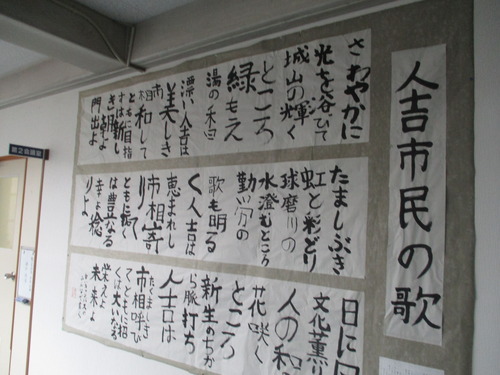 人吉市民の歌
さわやかに
光を浴びて
城山の輝く
ところ
緑もえ
湯の香
人吉は
美しき
市相和して
ともに目指
すは新し
き朝よ
門出よ
たましぶき
虹と彩どり
球磨川の
水澄むところ
勤労の
歌も明る
く人吉は
恵まれし
市相寄
りて
ともに築く
は豊なる
幸よ稔
りよ
日に
文化薫り
人の和
花咲く
ところ
新生のちか
ら脈打ち
人吉は
市相呼び
てともに招
くは大いなる
栄えよ
未来よ